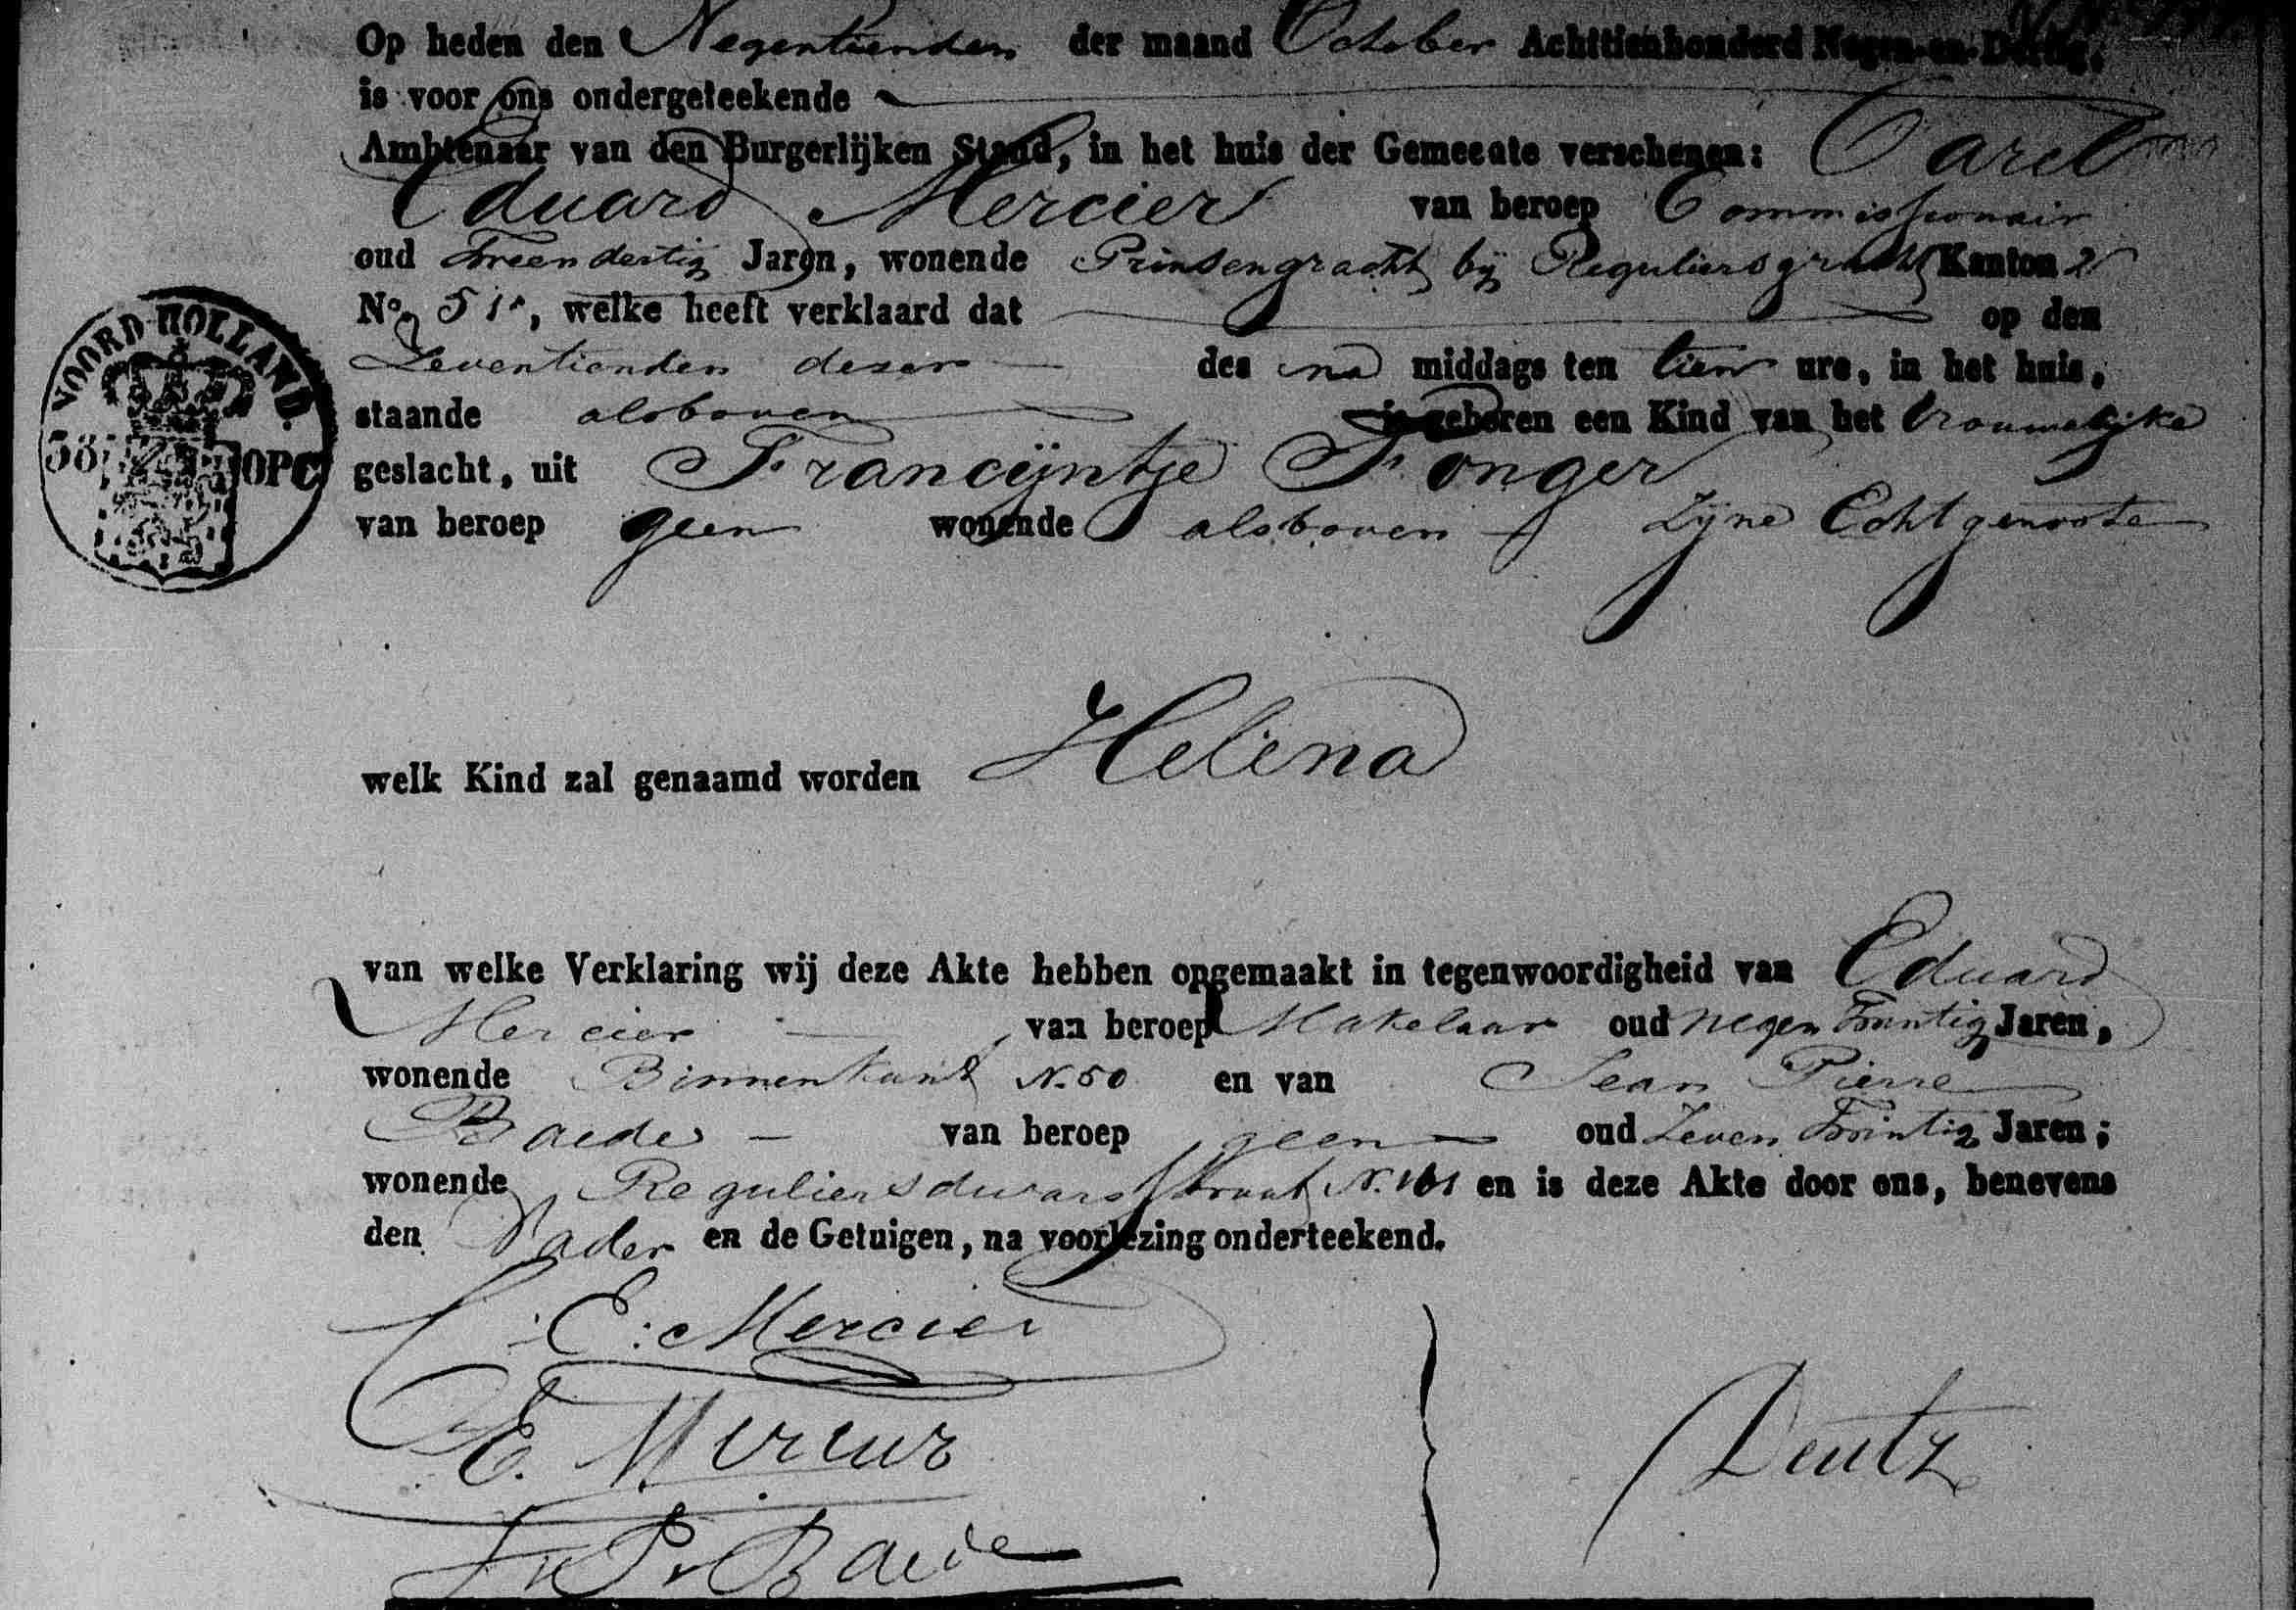 Op heden den Negentienden der maand October Achttienhonderd Negen-en-Dertig,
is voor ons ondergeteekende
Ambtenaar van den Burgerlijken Stand, in het huis der Gemeente verschenen: Carel
Eduard Mercier van beroep Commissionair
oud Tweendertig Jaren, wonende Prinsengracht bij Reguliersgracht Kanton 2
No. 51, welke heeft verklaard dat op den
Zeventienden dezer des na middags ten tien ure, in het huis,
staande alsboven is geboren een Kind van het Vrouwelijke
geslacht, uit Francijntje Fonger
van beroep geen wonende alsboven Zijne Echtgenoote
NOORD-HOLLAND.
38 OPC
welk Kind zal genaamd worden Helena
van welke Verklaring wij deze Akte hebben opgemaakt in tegenwoordigheid van Eduard
Mercier van beroep Makelaar oud negen Twintig Jaren,
wonende Binnenkant N. 50 en van Jean Pierre
Baede van beroep geen oud Zeven Twintig Jaren;
wonende Reguliersdwarsstraat N. 161 en is deze Akte door ons, benevens
den Vader en de Getuigen, na voorlezing onderteekend.
C: E: Mercier
E. Mercier
J. P. Baede
Deutz